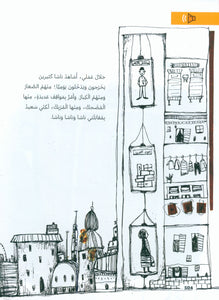 خلال عملي، أشاهد ناسًا كثيرين
يخرجون ويدخلون يوميًا: منهم الصغار
منهم الكبار. وأمر بمواقف عديدة، منها
المضحك، ومنها الغريبة، لكنني سعيد
بلقائي ناسًا وناسًا وناسًا.